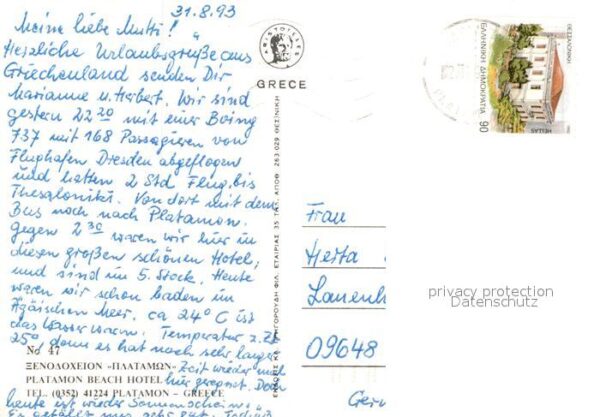 31.8.93
Meine liebe Mutti!
Herzliche Urlaubsgrüße aus
Griechenland senden Dir
Marianne u. Herbert. Wir sind
gestern 22 20 mit einer Boing
737 mit 168 Passagieren vom
Flughafen Dresden abgeflogen
und hatten 2 Std Flug bis
Thessaloniki. Von dort mit dem
Bus noch nach Platamon.
gegen 2 30 waren wir hier im
diesen großen schönen Hotel,
und sind im 5. Stock. Heute
waren wir schon baden im
Ägäischen Meer. ca 24° C ist
das Wasser warm. Temperatur z.Zt
25° denn es hat nach sehr langer
Zeit wieder mal
hier geregnet. Doch
heute ist wieder Sonnenschein.
Es gefällt uns sehr gut.
No 47
ΞΕΝΟΔΟΧΕΙΟΝ «ΠΛΑΤΑΜΩΝ»
PLATAMON BEACH HOTEL
TEL. (0352) 41224 PLATAMON – GREECE
ARISTOTELES
GRECE
ΦΙΛ. ΕΤΑΙΡΙΑΣ 35 ΤΗΛ. ΑΠΟΘ. 263.029 ΘΕΣ/ΝΙΚΗ
ΘΕΣΣΑΛΟΝΙΚΗ
ΕΛΛΗΝΙΚΗ ΔΗΜΟΚΡΑΤΙΑ
90
HELLAS
Frau
Herta
09648
privacy protection
Datenschutz